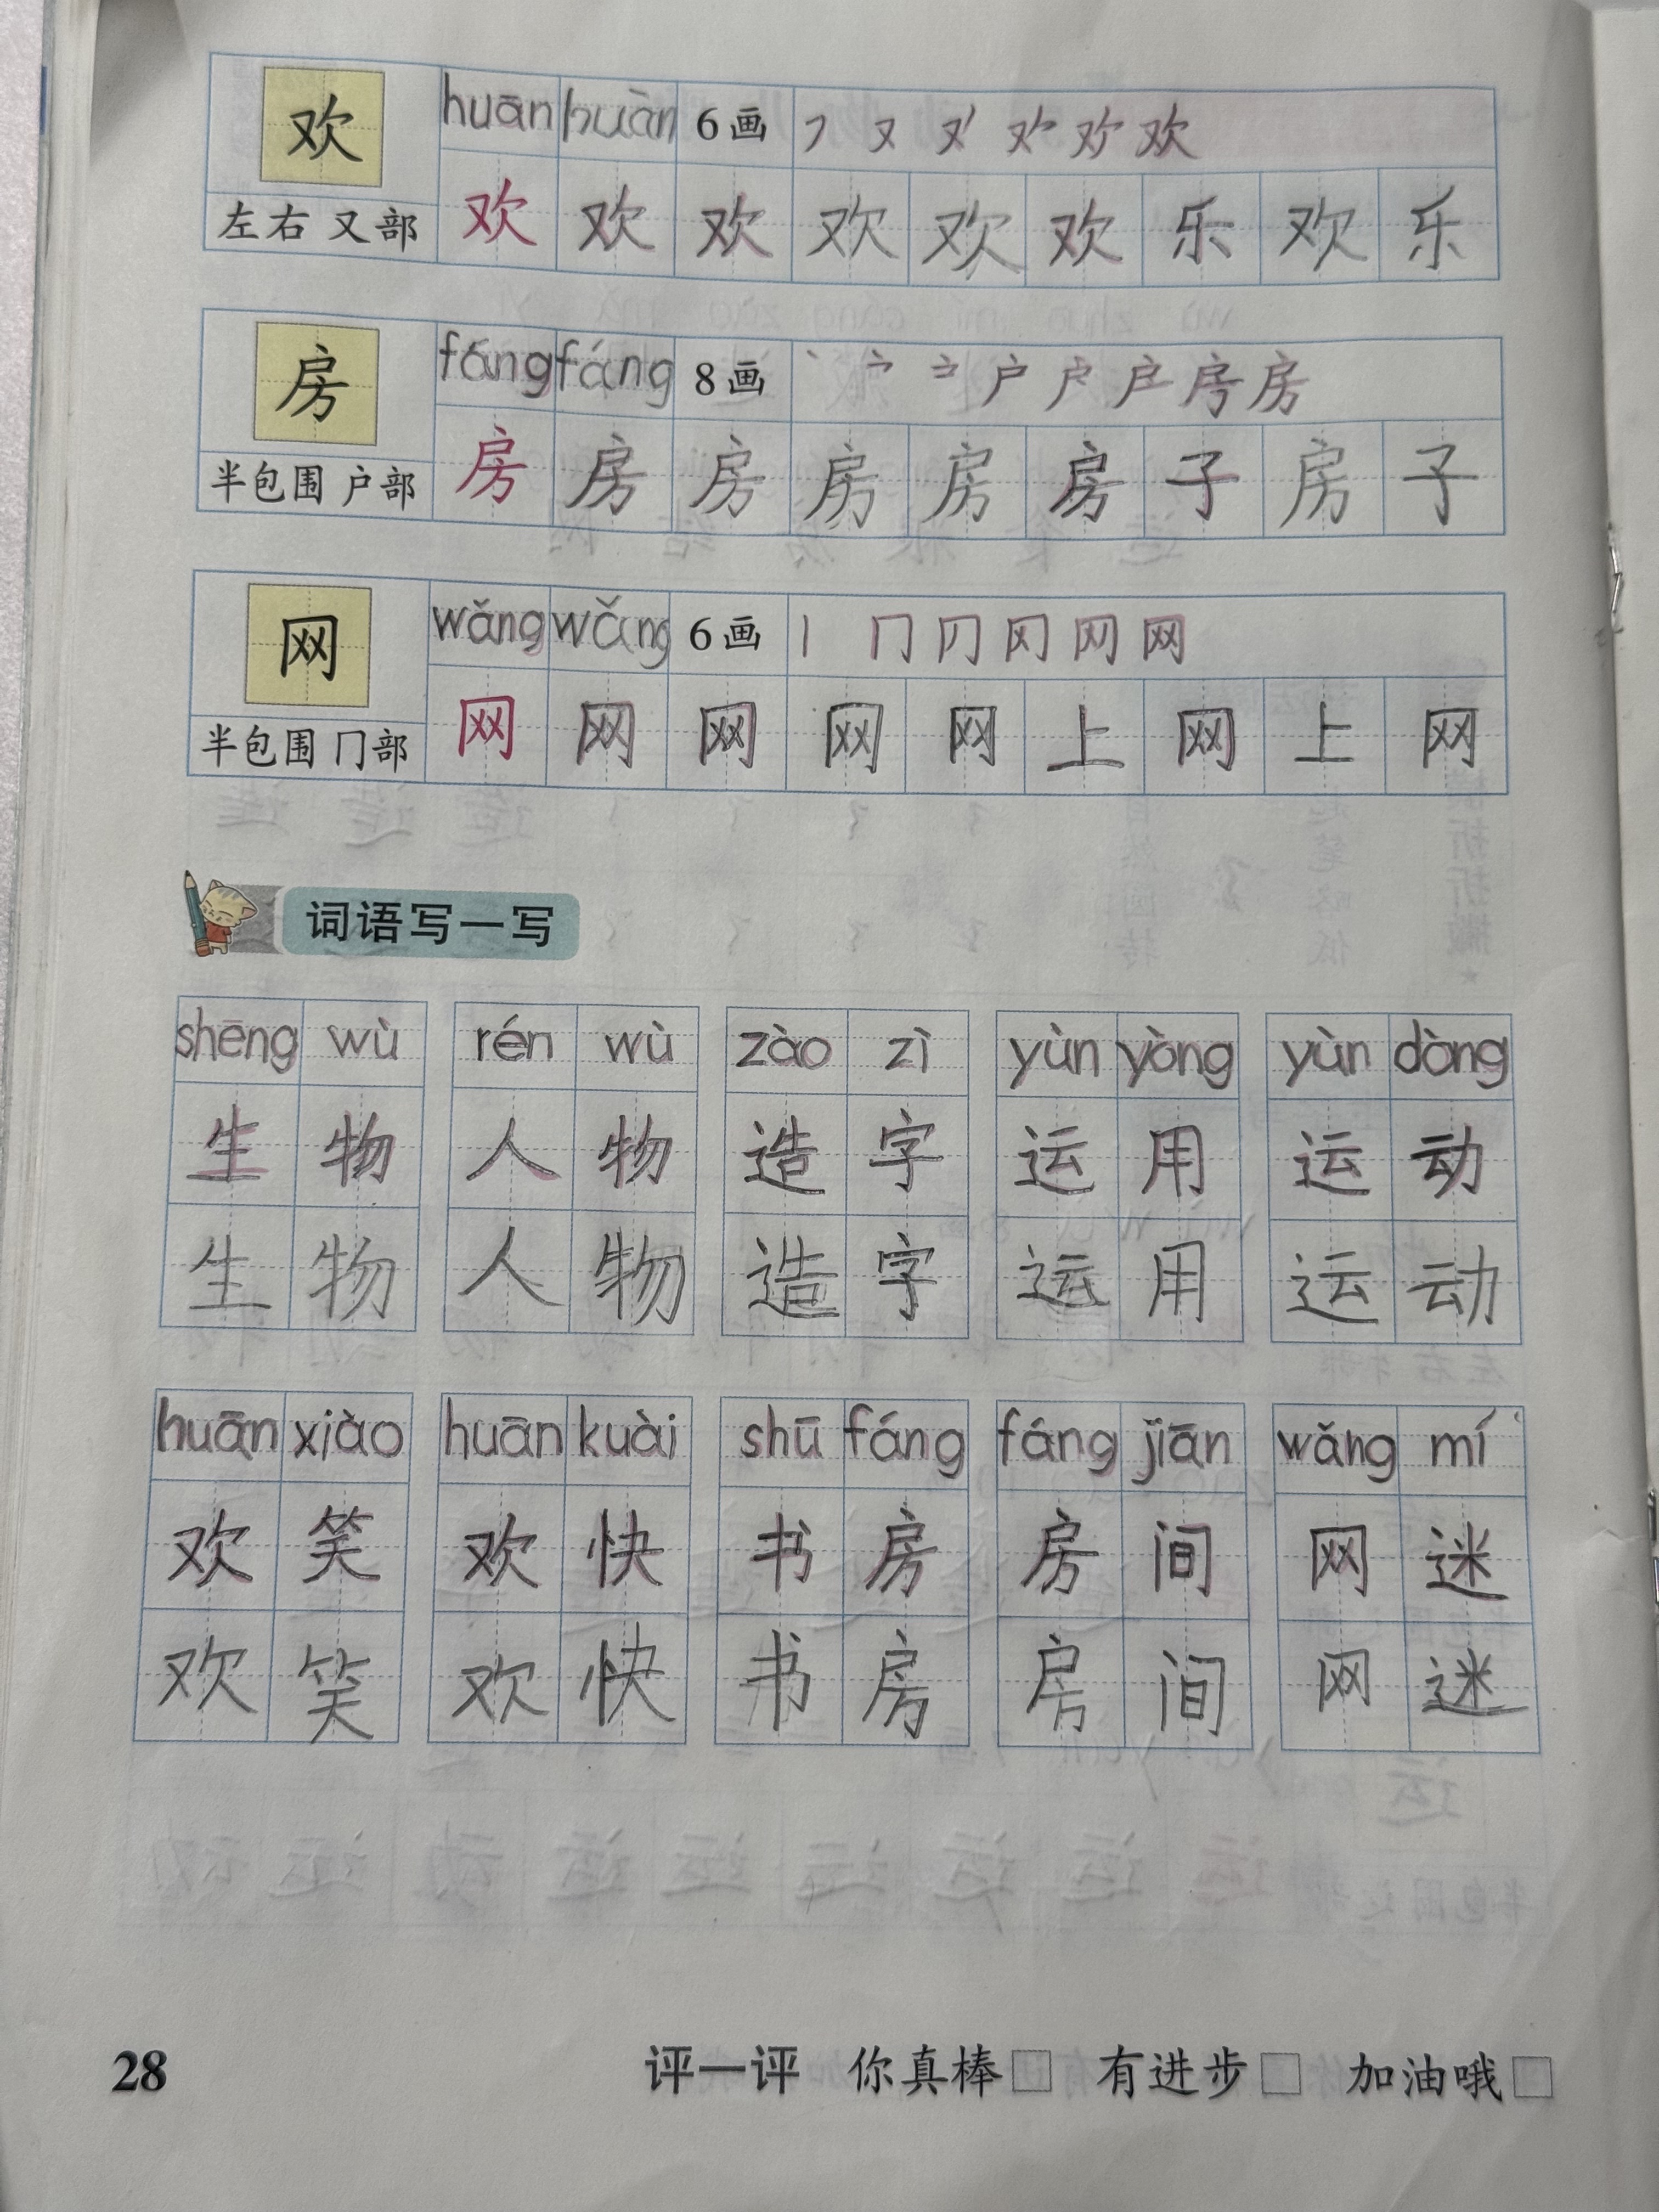 欢 huān huān 6画 ㇇ 又 欢
左右 又部 欢 欢 欢 欢 欢 欢 乐 欢 乐
房 fáng fáng 8画 丶 户 户 房 房
半包围 户部 房 房 房 房 房 房 子 房 子
网 wǎng wǎng 6画 丨 冂 冈 网 网
半包围 冂部 网 网 网 网 网 上 网 上 网
词语写一写
shēng wù rén wù zào zì yùn yòng yùn dòng
生物 人物 造字 运用 运动
生物 人物 造字 运用 运动
huān xiào huān kuài shū fáng fáng jiān wǎng mí
欢笑 欢快 书房 房间 网迷
欢笑 欢快 书房 房间 网迷
28 评一评 你真棒□ 有进步□ 加油哦□